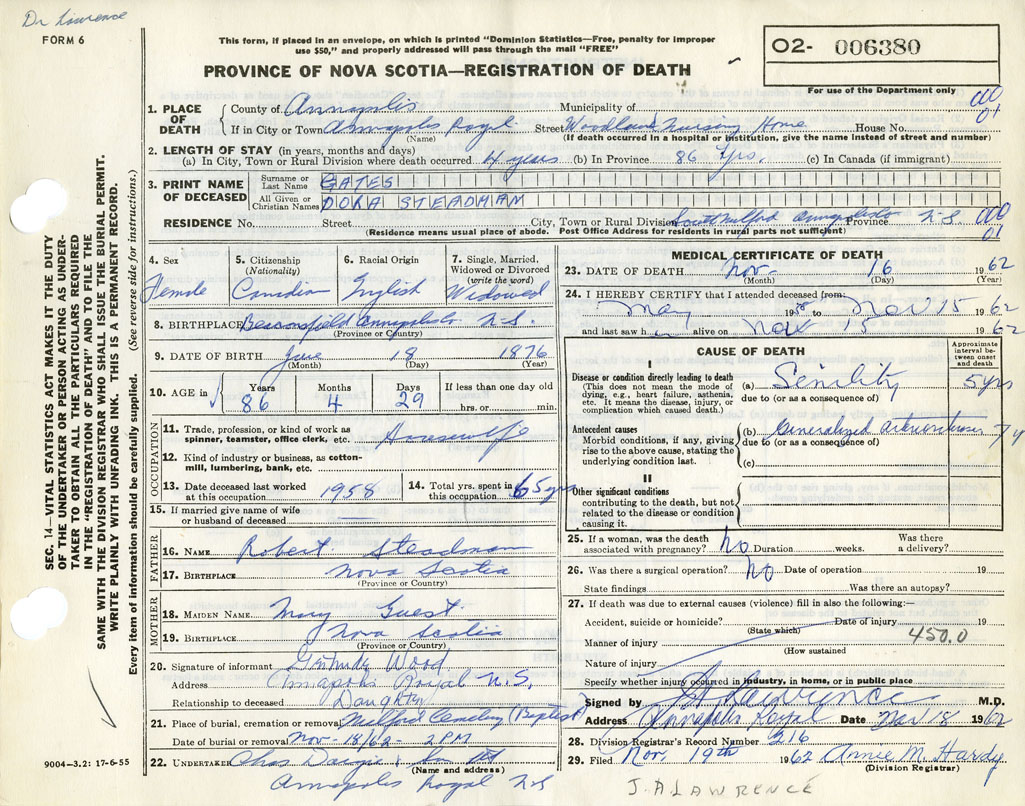 Dr Lawrence
FORM 6
This form, if placed in an envelope, on which is printed "Dominion Statistics—Free, penalty for improper
use $50," and properly addressed will pass through the mail "FREE"
PROVINCE OF NOVA SCOTIA—REGISTRATION OF DEATH
O2- 006380
For use of the Department only
000
01
1. PLACE OF DEATH
County of Annapolis Municipality of
If in City or Town Annapolis Royal Street Woodlawn Nursing Home House No.
(Name) (If death occurred in a hospital or institution, give the name instead of street and number)
2. LENGTH OF STAY (in years, months and days)
(a) In City, Town or Rural Division where death occurred 4 years (b) In Province 86 Yrs. (c) In Canada (if immigrant)
3. PRINT NAME OF DECEASED
Surname or Last Name GATES
All Given or Christian Names DORA STEADMAN
RESIDENCE No. Street City, Town or Rural Division South Milford Annapolis Co Province N.S.
(Residence means usual place of abode. Post Office Address for residents in rural parts not sufficient)
000
01
4. Sex
Female
5. Citizenship
(Nationality)
Canadian
6. Racial Origin
English
7. Single, Married,
Widowed or Divorced
(write the word)
Widowed
8. BIRTHPLACE Beaconsfield Annapolis Co N.S.
(Province or Country)
9. DATE OF BIRTH June 18 1876
(Month) (Day) (Year)
10. AGE in
Years Months Days If less than one day old
86 4 29 hrs. or min.
OCCUPATION
11. Trade, profession, or kind of work as
spinner, teamster, office clerk, etc. Housewife
12. Kind of industry or business, as cotton-
mill, lumbering, bank, etc.
13. Date deceased last worked
at this occupation 1958
14. Total yrs. spent in
this occupation 65 yrs
15. If married give name of wife
or husband of deceased
FATHER
16. NAME Robert Steadman
17. BIRTHPLACE Nova Scotia
(Province or Country)
MOTHER
18. MAIDEN NAME Mary Guest
19. BIRTHPLACE Nova Scotia
(Province or Country)
20. Signature of informant Gertrude Wood
Address Annapolis Royal N.S.
Relationship to deceased Daughter
21. Place of burial, cremation or removal Milford Cemetery (Baptist)
Date of burial or removal Nov - 18/62 - 2 PM
22. UNDERTAKER Chas Dargie & Son Ltd
(Name and address)
Annapolis Royal N.S
MEDICAL CERTIFICATE OF DEATH
23. DATE OF DEATH Nov. 16 1962
(Month) (Day) (Year)
24. I HEREBY CERTIFY that I attended deceased from:
May 19 to Nov 15 1962
and last saw h alive on Nov 15 1962
CAUSE OF DEATH
Approximate
interval be-
tween onset
and death
I
Disease or condition directly leading to death
(This does not mean the mode of
dying, e.g., heart failure, asthenia,
etc. It means the disease, injury, or
complication which caused death.)
(a) Senility 5 yrs
due to (or as a consequence of)
Antecedent causes
Morbid conditions, if any, giving
rise to the above cause, stating the
underlying condition last.
(b) Generalized arteriosclerosis 7 y
due to (or as a consequence of)
(c)
II
Other significant conditions
contributing to the death, but not
related to the disease or condition
causing it.
25. If a woman, was the death
associated with pregnancy? No Duration weeks. Was there
a delivery?
26. Was there a surgical operation? No Date of operation 19
State findings Was there an autopsy?
27. If death was due to external causes (violence) fill in also the following:—
Accident, suicide or homicide? Date of injury 19
(State which)
Manner of injury 450.0
(How sustained
Nature of injury
Specify whether injury occurred in industry, in home, or in public place
Signed by J A Lawrence M.D.
Address Annapolis Royal Date Nov 18 1962
28. Division Registrar's Record Number 216
29. Filed Nov. 19th 1962 Annie M. Hardy
(Division Registrar)
J. A LAWRENCE
SEC. 14—VITAL STATISTICS ACT MAKES IT THE DUTY
OF THE UNDERTAKER OR PERSON ACTING AS UNDER-
TAKER TO OBTAIN ALL THE PARTICULARS REQUIRED
IN THE "REGISTRATION OF DEATH" AND TO FILE THE
SAME WITH THE DIVISION REGISTRAR WHO SHALL ISSUE THE BURIAL PERMIT.
WRITE PLAINLY WITH UNFADING INK. THIS IS A PERMANENT RECORD.
Every item of information should be carefully supplied. (See reverse side for instructions.)
9004—3.2: 17-6-55